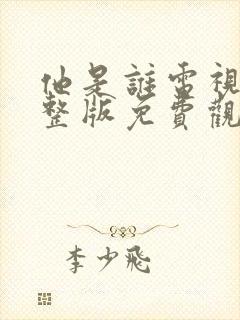 他是誰電視
整版免費觀
李少飛